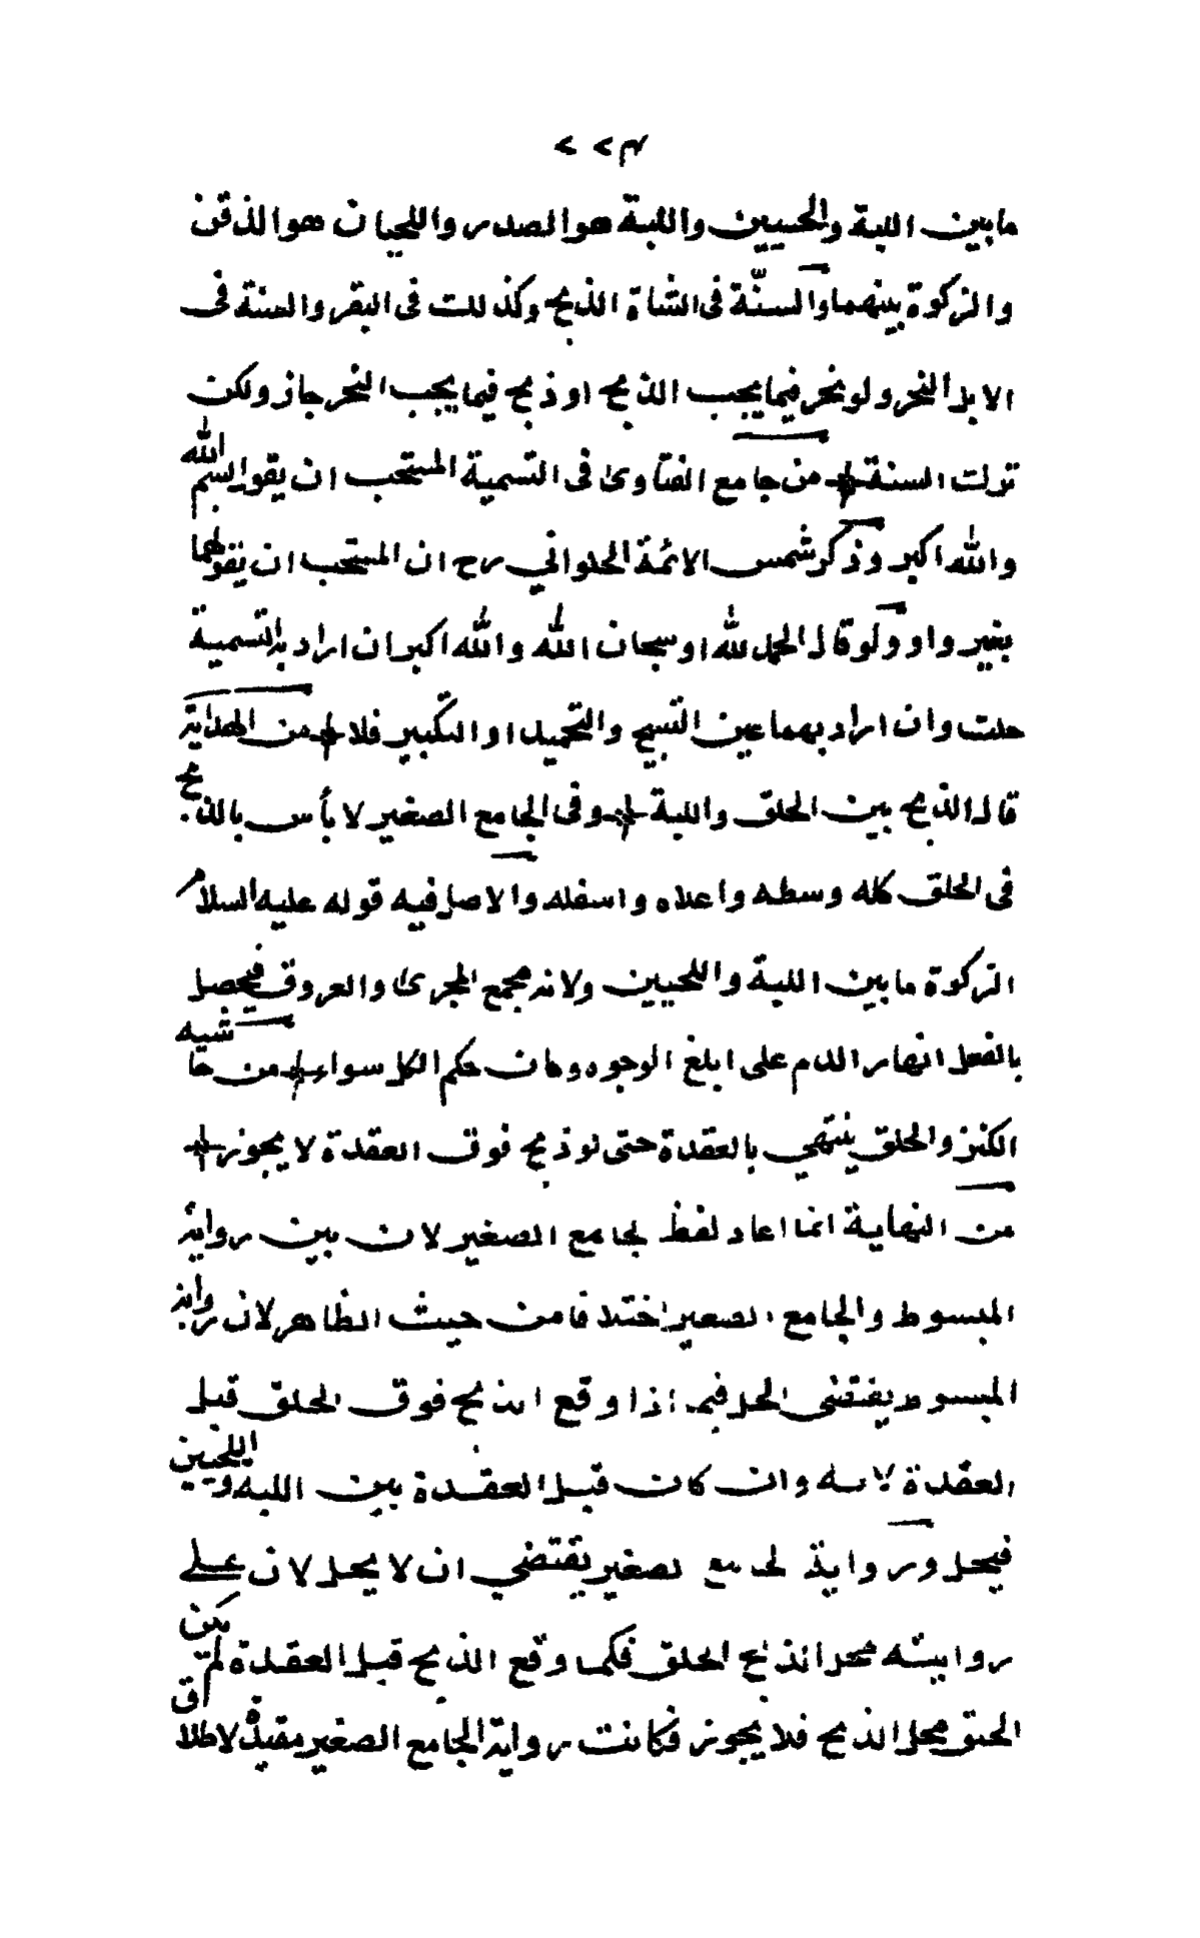 ٢٢٣
ما بين اللبة واللحيين واللبة هو الصدر واللحيان هو الذقن
والزكوة بينهما والسنّة فى الشاة الذبح وكذلك فى البقر والسنة فى
الابل النحر ولو نحر فيما يجب الذبح او ذبح فيما يجب النحر جاز ولكن
ترك السنة من جامع الفتاوى فى التسمية المستحب ان يقول بسم الله
والله اكبر وذكر شمس الائمة الحلواني رح ان المستحب ان يقولهما
بغير واو ولو قال الحمد لله او سبحان الله والله اكبر ان اراد به التسمية
حلت وان اراد بهما عين التسبيح والتحميد او التكبير فلا من الهداية
قال الذبح بين الحلق واللبة وفى الجامع الصغير لا بأس بالذبح
فى الحلق كله وسطه واعلاه واسفله والاصل فيه قوله عليه السلام
الزكوة ما بين اللبة واللحيين ولانه مجمع المجرى والعروق فيحصل
بالفعل انهار الدم على ابلغ الوجوه وكان حكم الكل سواء من حاشيه
الكنز والحلق ينتهي بالعقدة حتى لو ذبح فوق العقدة لا يجوز
من النهاية انما اعاد لفظ لجامع الصغير لان بين رواية
المبسوط والجامع الصغير اختلافا من حيث الظاهر لان رواية
المبسوط يقتضى الحل فيما اذا وقع الذبح فوق الحلق قبل
العقدة لانه وان كان قبل العقدة بين اللبه واللحيين
فيحل ورواية لجامع الصغير يقتضي ان لا يحل لان على
روايته محل الذبح الحلق فكما وقع الذبح قبل العقدة لم يكن
الحلق محل الذبح فلا يجوز فكانت رواية الجامع الصغير مقيدة لاطلاق